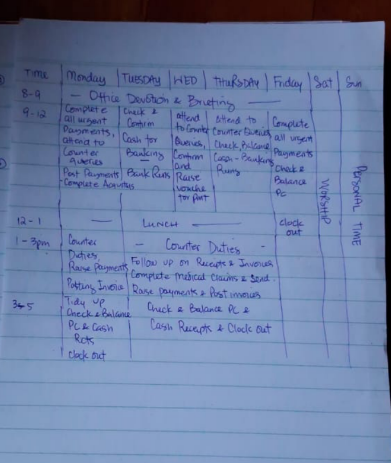 TIME Monday TUESDAY WED THURSDAY Friday Sat Sun
8-9 — Office Devotion & Briefing —
9-12 Complete all urgent Payments, attend to Counter Queries
Post Payments
Complete Activities
Check & Confirm Cash for Banking
Bank Runs
attend to Counter Queries, Confirm and Raise Voucher for Port
Attend to Counter Queries, Check, Balance Cash - Banking Runs
Complete all urgent Payments Check & Balance PC
WORSHIP
PERSONAL TIME
12-1 — LUNCH — Clock out
1-3pm Counter Duties, Raise Payments Posting Invoice
- Counter Duties -
Follow up on Receipts & Invoices
Complete Medical Claims & Send
Raise payments & Post invoices
3-5 Tidy up
Check & Balance
PC & Cash
Rcts
Clock out
Check & Balance PC &
Cash Receipts & Clock out